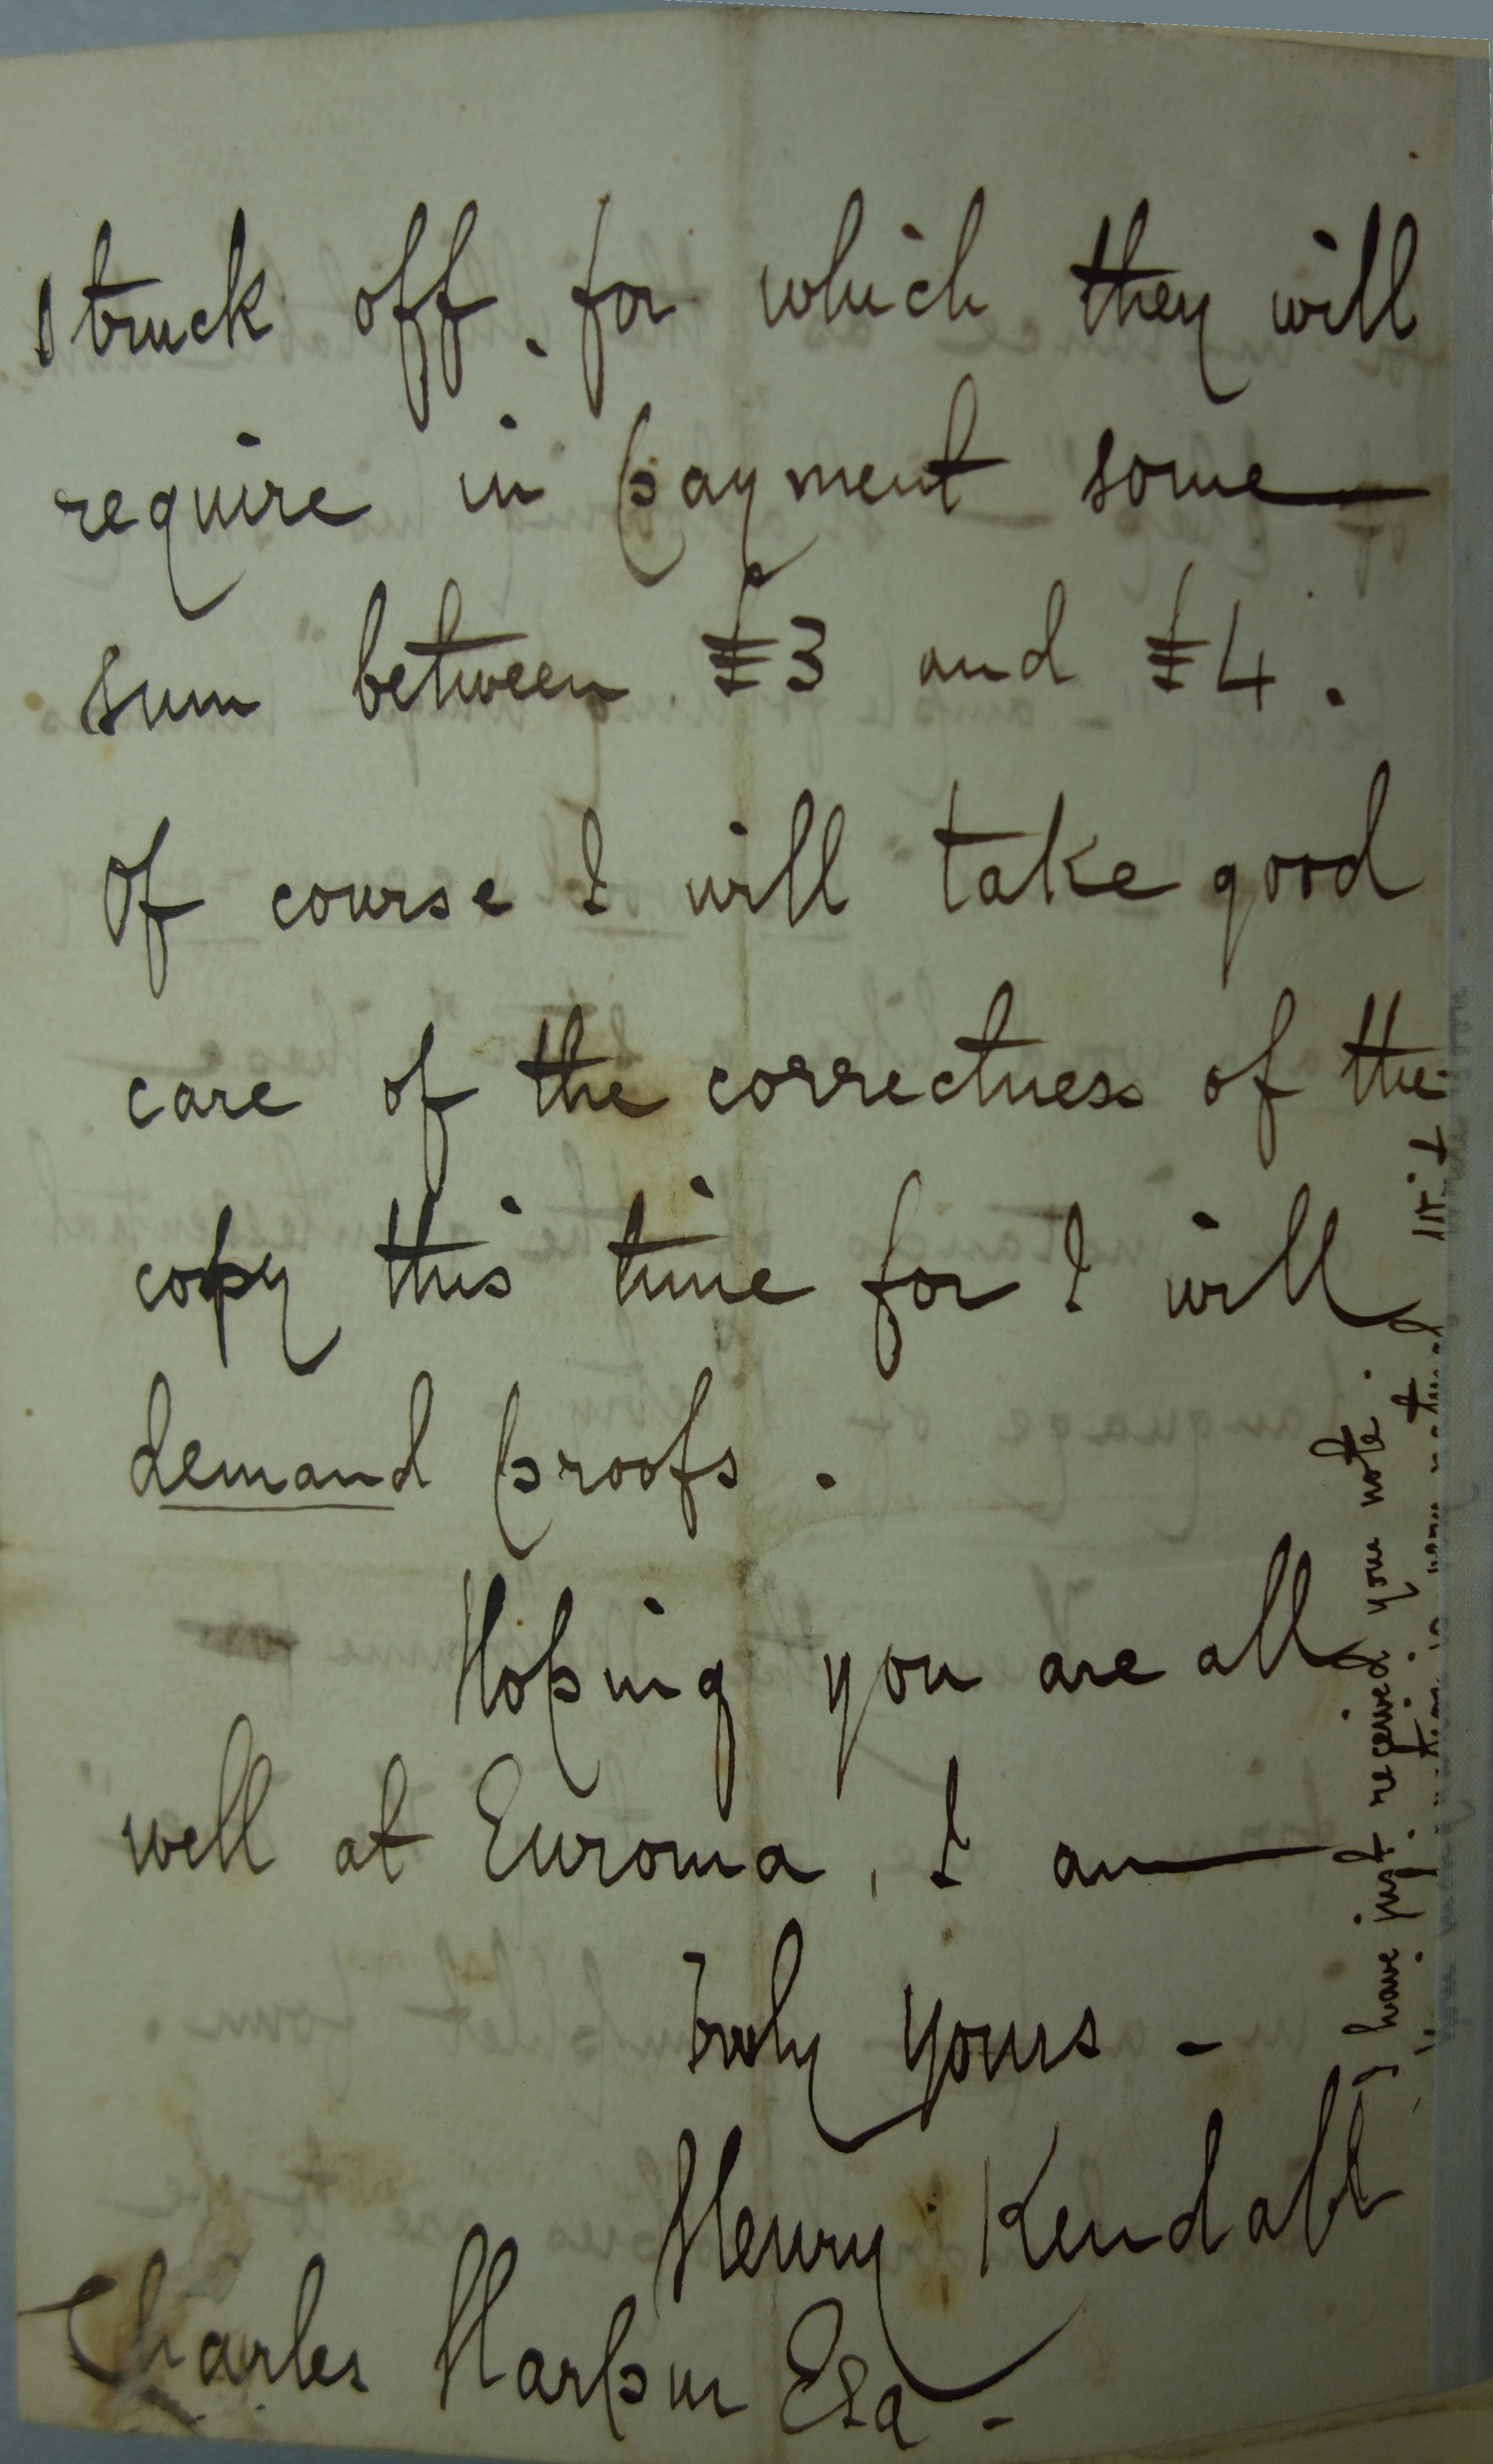 struck off, for which they will
require in payment some
sum between £3 and £4.
Of course I will take good
care of the correctness of the
copy this time for I will
demand proofs.
Hoping you are all
well at Euroma, I am
Truly yours -
Henry Kendall
Charles Harpur Esq -
I have just received your note.
is very natural